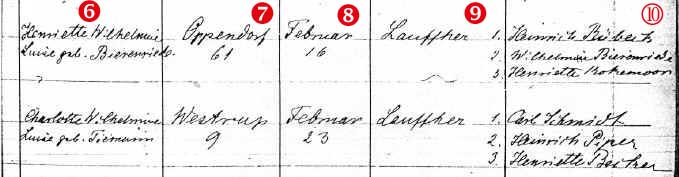 6 7 8 9 10
Henriette Wilhelmine Oppendorf Februar Lauffher 1. Heinrich Bübert
Luise geb. Bierenriede. 61 16 2. Wilhelmine Bierenriede
3. Henriette Kokemoor
Charlotte Wilhelmine Westrup Februar Lauffher 1. Carl Schmidt
Luise geb. Tiemann 9 23 2. Heinrich Piper
3. Henriette Becker